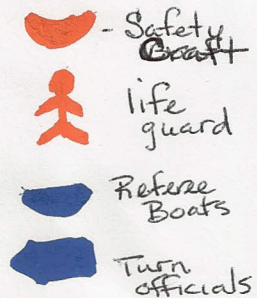 - Safety
Craft
life
guard
Referee
Boats
Turn
officials